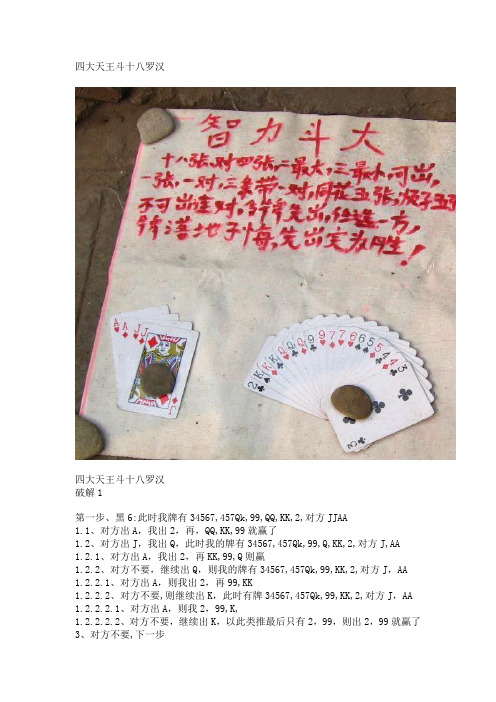 四大天王斗十八罗汉
智力斗大
十八张,对四张,二最大,三最小,可出,
一张,一对,三条带一对,同花五张,顺子五张
不可出连对,多牌先出,任选一方,
牌落地不悔,先出完为胜!
A A J J
J
2 K K Q Q Q 9 9 7 7 6 6 5 5 4 4 3
3
四大天王斗十八罗汉
破解1
第一步、黑6:此时我牌有34567,457Qk,99,QQ,KK,2,对方JJAA
1.1、对方出A，我出2，再，QQ,KK,99就赢了
1.2、对方出J，我出Q，此时我的牌有34567,457Qk,99,Q,KK,2,对方J,AA
1.2.1、对方出A，我出2，再KK,99,Q则赢
1.2.2、对方不要，继续出Q，则我的牌有34567,457Qk,99,KK,2,对方J，AA
1.2.2.1、对方出A，则我出2，再99,KK
1.2.2.2、对方不要,则继续出K，此时有牌34567,457Qk,99,KK,2,对方J，AA
1.2.2.2.1、对方出A，则我2，99,K,
1.2.2.2.2、对方不要，继续出K，以此类推最后只有2，99，则出2，99就赢了
3、对方不要,下一步